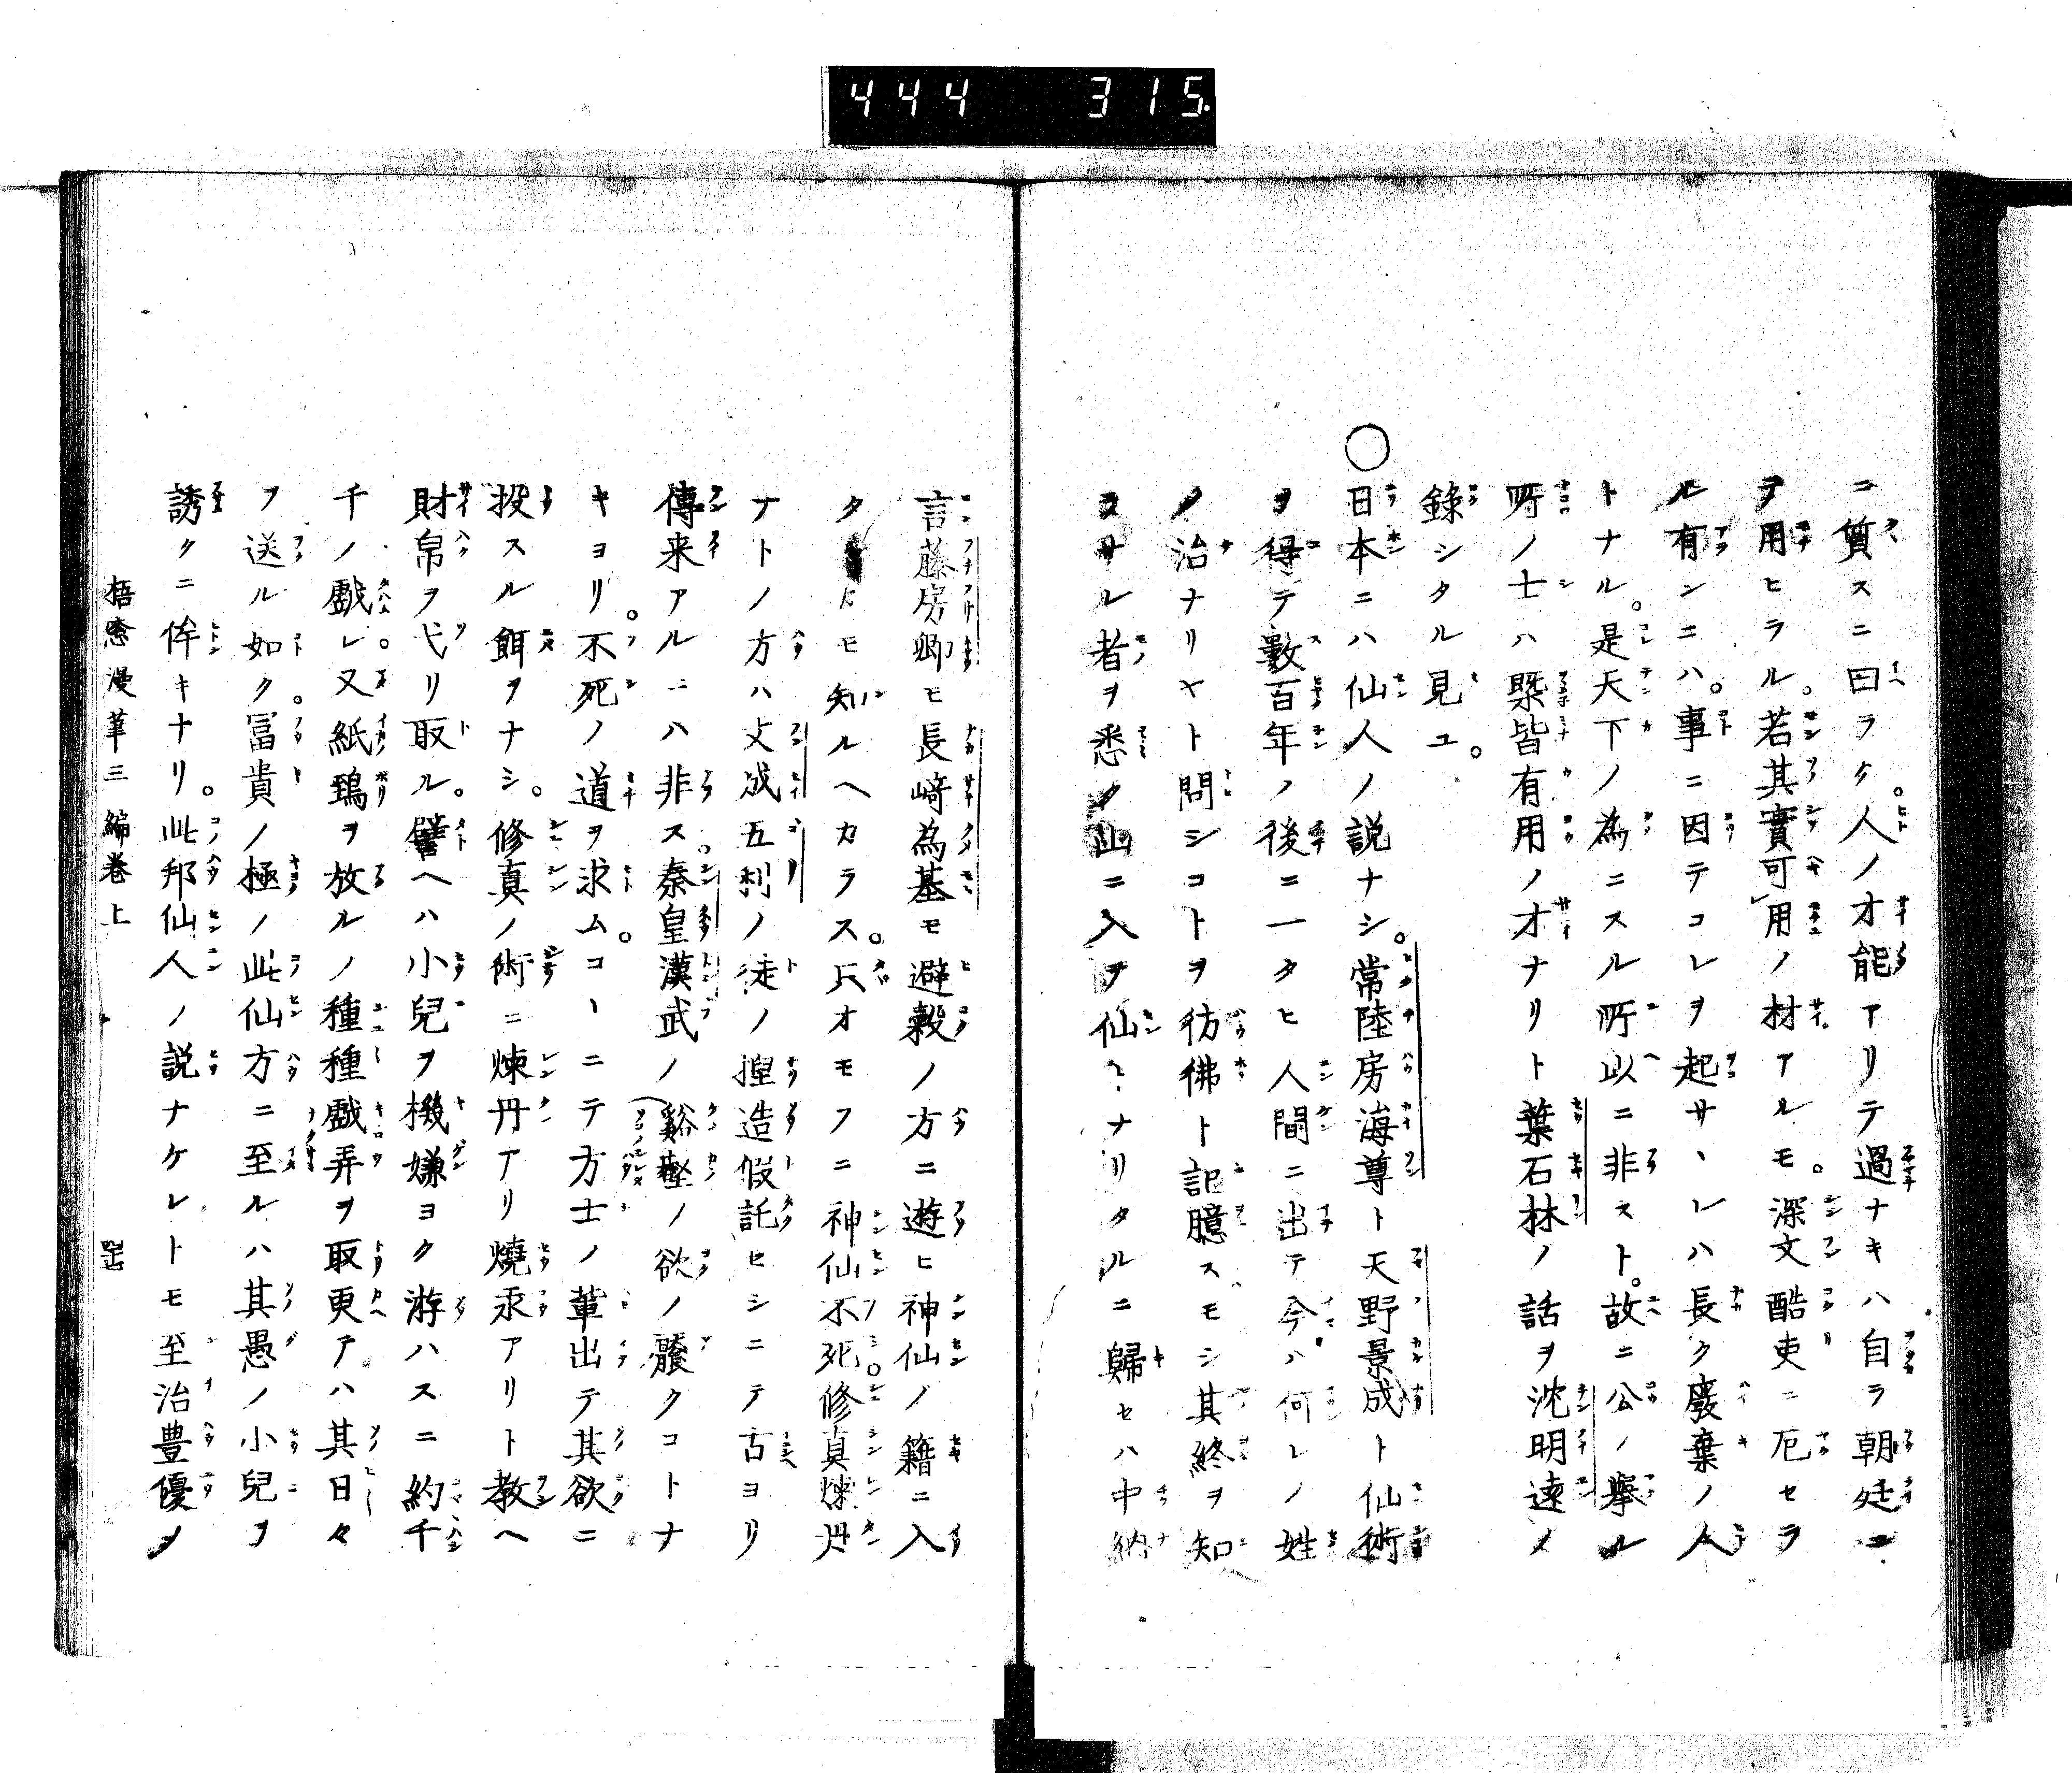 444 315
ニ質スニ曰ラク。人ノ才能アリテ過ナキハ自ラ朝廷ニ
ヲ用ヒラル。若其實可用ノ材アルモ。深文酷吏ニ厄セラ
ル有ンニハ。事ニ因テコレヲ起サヽレハ長ク廢棄ノ人
トナル。是天下ノ為ニスル所以ニ非スト。故ニ公ノ擧ル
所ノ士ハ槩皆有用ノ才ナリト葉石林ノ話ヲ沈明遠ノ
錄シタル見ユ。
〇日本ニハ仙人ノ説ナシ。常陸房海尊ト天野景成ト仙術
ヲ得テ數百年ノ後ニ一タヒ人間ニ出テ今ハ何レノ姓
ノ治ナリヤト問シコトヲ彷彿ト記臆スモシ其終ヲ知
ヨサル者ヲ悉ク山ニ入ヲ仙〻ナリタルニ歸セハ中納
言藤房卿モ長﨑為基モ避穀ノ方ニ遊ヒ神仙ノ籍ニ入
タトモ知ルヘカラス。只オモフニ神仙不死。修真煉丹
ナトノ方ハ文成五利ノ徒ノ揑造假託セシニテ古ヨリ
傳来アルニハ非ス。秦皇漢武ノ谿壑ノ欲ノ饜クコトナ
キヨリ。不死ノ道ヲ求ム。コヽニテ方士ノ輩出テ其欲ニ
投スル餌ヲナシ。修真ノ術ニ煉丹アリ燒汞アリト教ヘ
財帛ヲ弋リ取ル。譬ヘハ小兒ヲ機嫌ヨク游ハスニ約千
千ノ戯レ。又紙鵄ヲ放ルノ種種戯弄ヲ取更アハ其日々
ヲ送ル如ク。冨貴ノ極ノ此仙方ニ至ルハ其愚ノ小兒ヲ
誘クニ侔キナリ。此邦仙人ノ説ナケレトモ至治豊優ノ
梧窓漫筆三編卷上